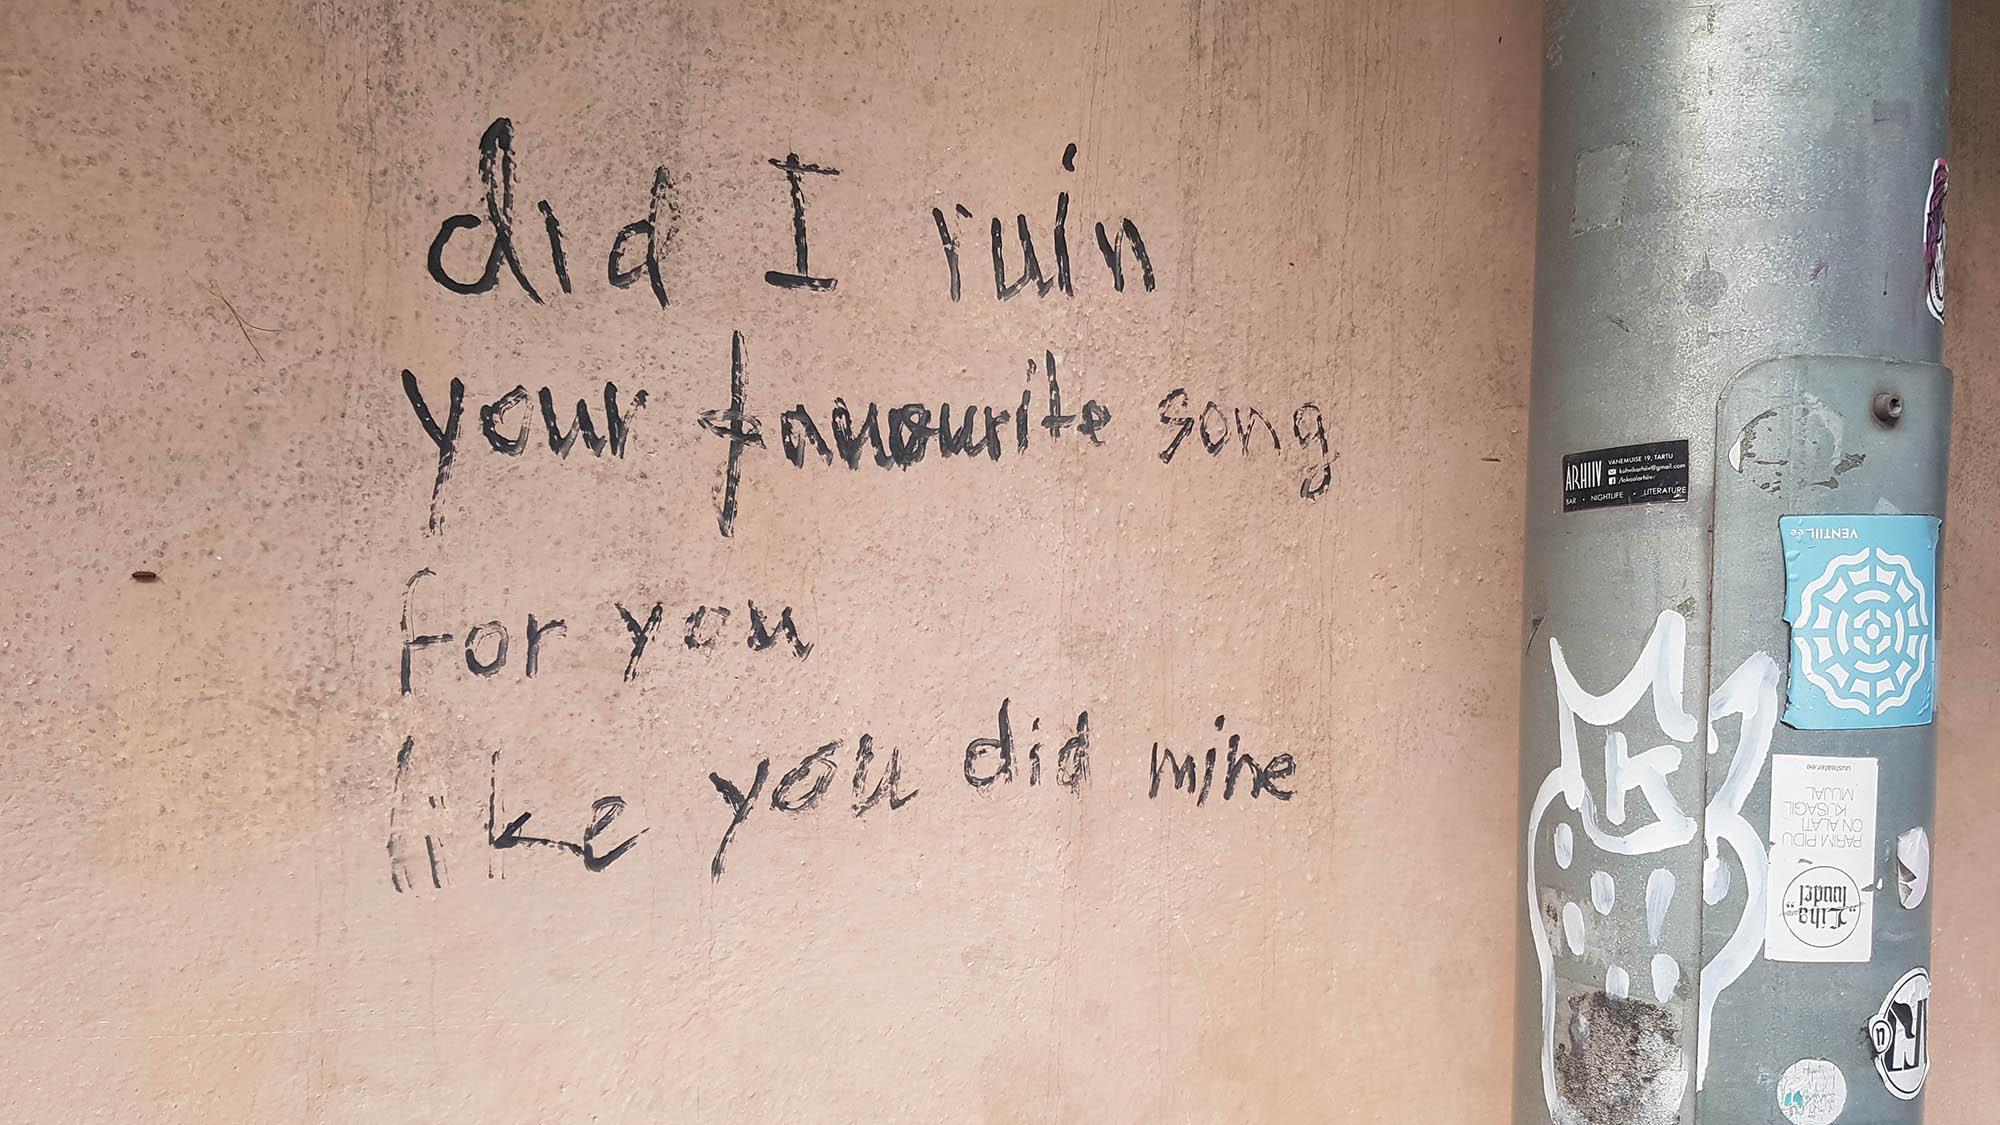 did I ruin
your favourite song
for you
like you did mine
ARHIIV
VANEMUISE 19, TARTU
kohvikarhiiv@gmail.com
/lokaalarhiiv
BAR • NIGHTLIFE • LITERATURE
VENTIIL.ee
K
"Liha
luudel"
PARIM PIDU
ON ALATI
KUSAGIL
MUJAL
uusteater.ee
n